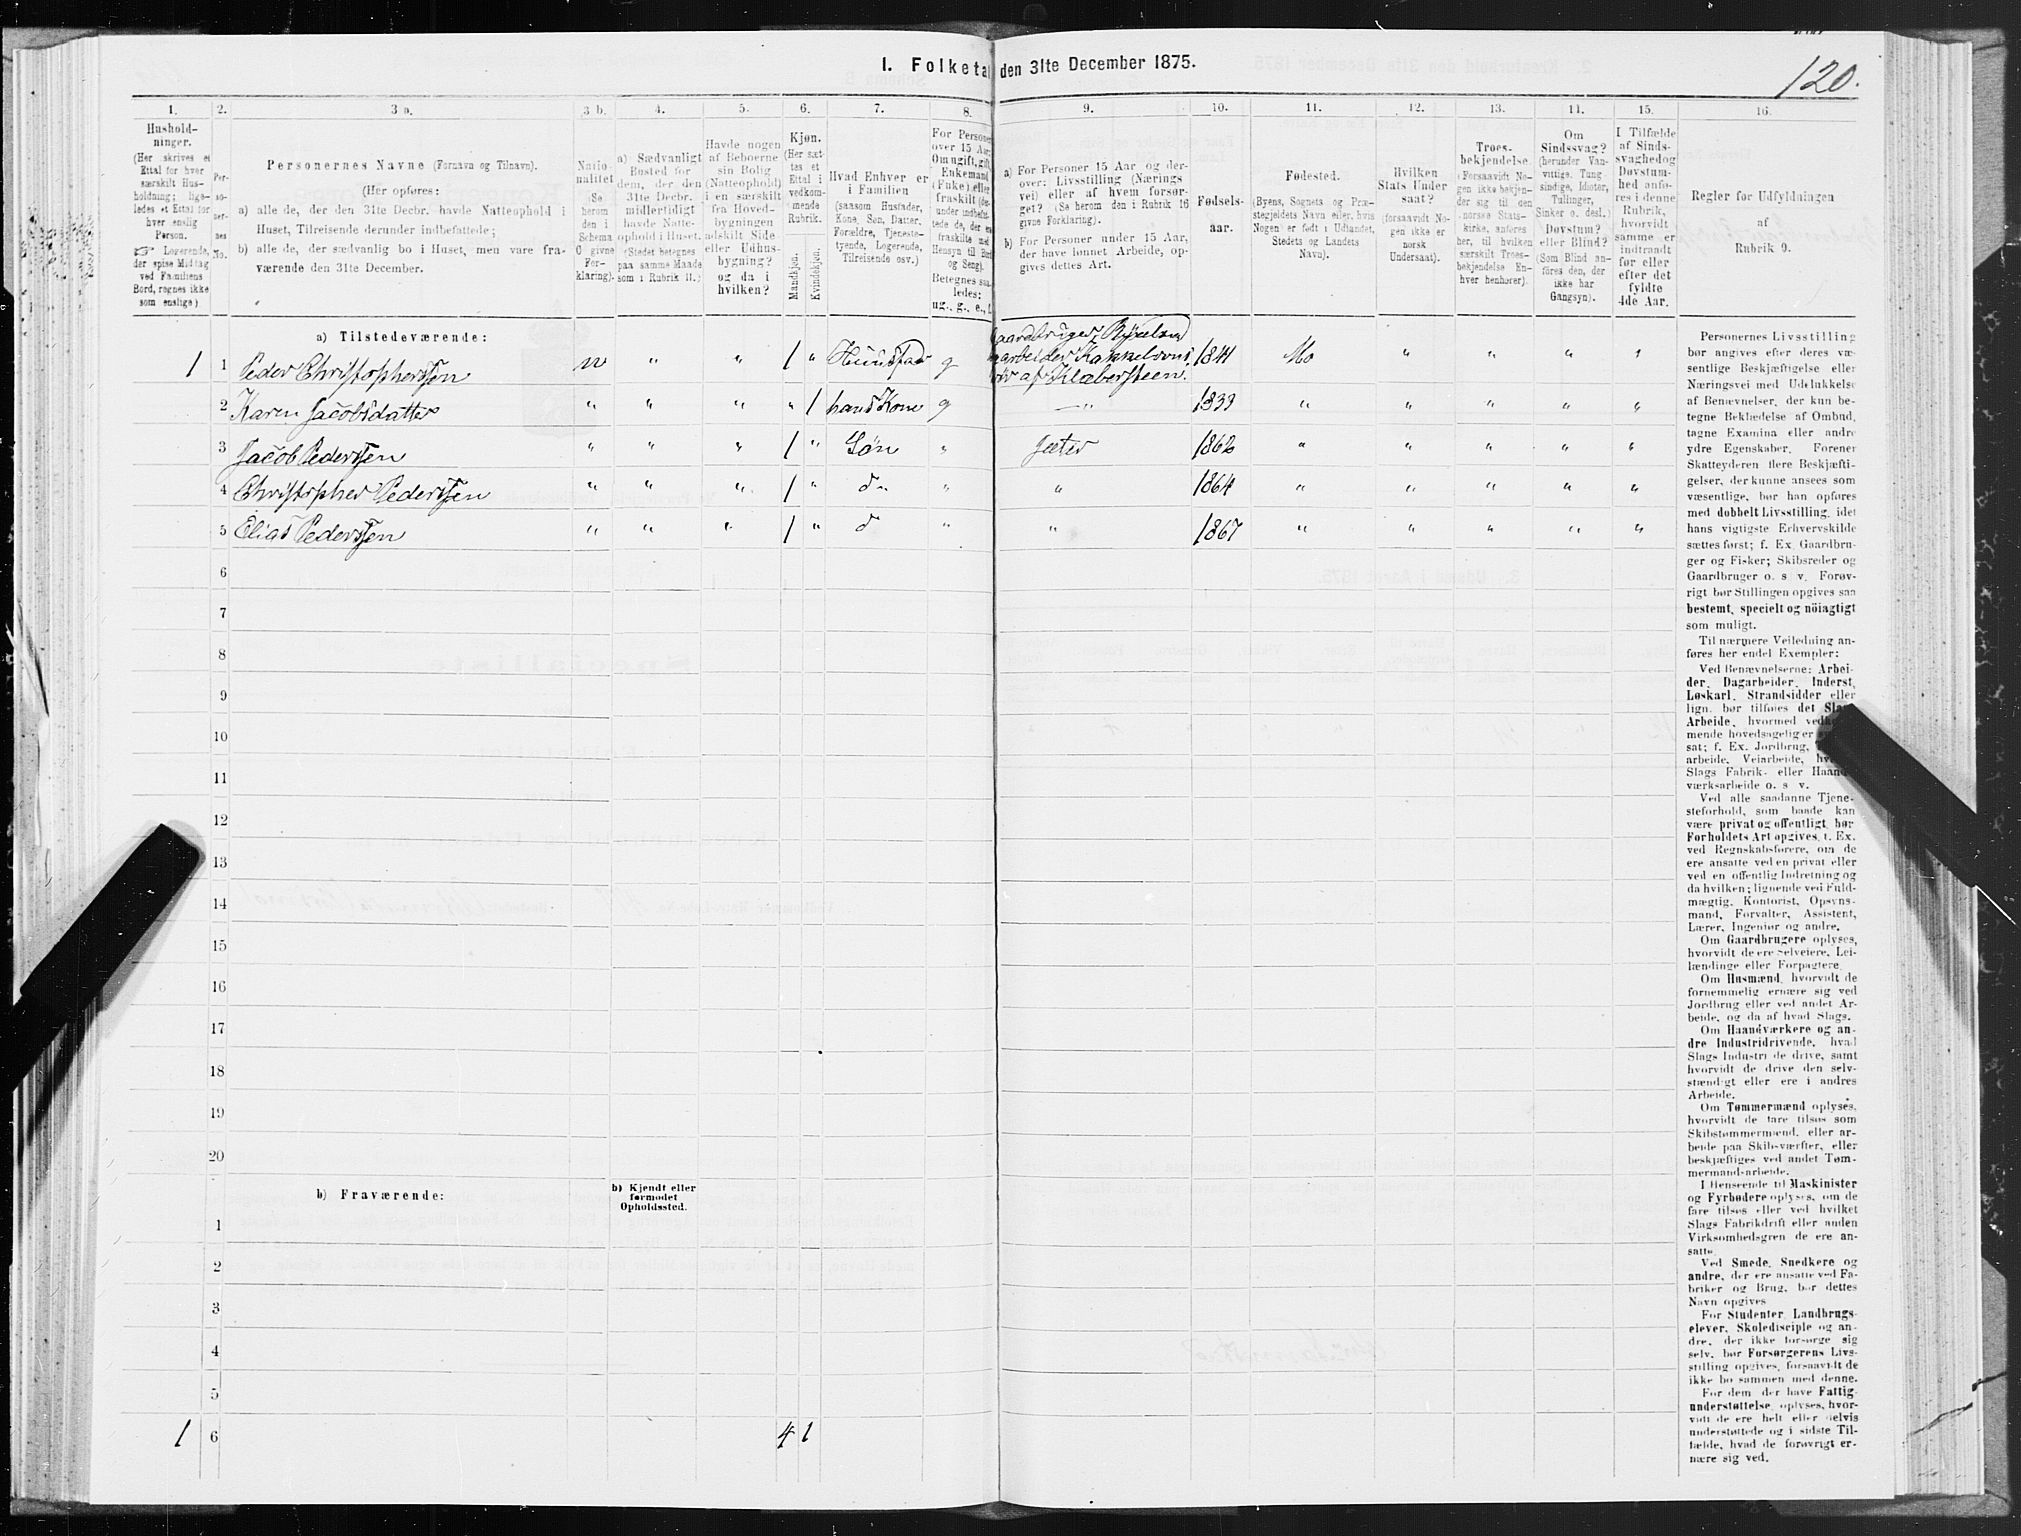 I. Folketal den 31te December 1875.
120.
1.
2.
3 a.
3 b.
4.
5.
6.
7.
8.
9.
10.
11.
12.
13.
14.
15.
16.
Hushold-
ninger.
(Her skrives et
Ettal for hver
særskilt Hus-
holdning; lige-
ledes et Ettal for
hver enslig
Person.
☞ Logerende,
der spise Middag
ved Familiens
Bord, regnes ikke
som enslige)
Per-
so-
ner-
nes
No.
Personernes Navne (Fornavn og Tilnavn).
(Her opføres:
a) alle de, der den 31te Decbr. havde Natteophold i
Huset, Tilreisende derunder indbefattede;
b) alle de, der sædvanlig bo i Huset, men vare fra-
værende den 31te December.
Natio-
nalitet
(Se
herom
den i
Schema
O givne
For-
klaring).
a) Sædvanligt
Bosted for
dem, der den
31te Decbr.
midlertidigt
havde Natte-
ophold i Huset.
(Stedet betegnes
paa samme Maade
som i Rubrik 11.)
Havde nogen
af Beboerne
sin Bolig
(Natteophold)
i en særskilt
fra Hoved-
bygningen
adskilt Side
eller Udhus-
bygning?
og da i
hvilken?
Kjøn.
(Her sæt-
tes et
Ettal i
vedkom-
mende
Rubrik.
Mandkjøn.
Kvindekjøn.
Hvad Enhver er
i Familien
(saasom Husfader,
Kone, Søn, Datter,
Forældre, Tjeneste-
tyende, Logerende,
Tilreisende osv.)
For Personer
over 15 Aar:
Om ugift, gift,
Enkemand
(Enke) eller
fraskilt
Hensyn til Bord
og Seng).
Betegnes saa-
ledes:
ug., g., e.,
a) For Personer 15 Aar og der-
over: Livsstilling (Nærings
vei) eller af hvem forsør-
get? (Se herom den i Rubrik 16
givne Forklaring).
b) For Personer under 15 Aar,
der have lønnet Arbeide, op-
gives dettes Art.
Fødsels-
aar.
Fødested.
(Byens, Sognets og Præ-
stegjeldets Navn eller, hvis
Nogen er født i Udlandet,
Stedets og Landets
Navn).
Hvilken
Stats Under
saat?
(forsaavidt No-
gen ikke er
norsk
Undersaat).
Troes-
bekjendelse.
(Forsaavidt No-
gen ikke bekjen-
der sig til den
norske Stats-
kirke, anføres
her, til hvilken
særskilt Troes-
bekjendelse En-
hver henhører).
Om
Sindssvag?
(herunder Van-
vittige, Tung
sindige, Idioter,
Tullinger,
Sinker o. desl.)
Døvstum?
eller Blind?
(Som Blind an-
føres den, der
ikke har
Gangsyn).
I Tilfælde
af Sinds-
svaghed og
Døvstum-
hed anfø-
res i denne
Rubrik,
hvorvidt
samme er
indtraadt
før eller
efter det
fyldte
4de Aar.
Regler for Udfyldningen
af
Rubrik 9.
a) Tilstedeværende:
1 1 Peder Christophersen n " " 1 " Huusfad g 1844 Mo " " " "
2 Karen Jacobsdatter " " " " 1 hans Kone g —"— 1833 " " " " "
3 Jacob Pedersen " " " 1 " Søn " Jæter 1862 " " " " "
4 Christopher Pedersen " " " 1 " d " " 1864 " " " " "
5 Elias Pedersen " " " 1 " d " " 1867 " " " " "
6
7
8
9
10
11
12
13
14
15
16
17
18
19
20
b) Fraværende:
b) Kjendt eller
formodet
Opholdssted.
1
2
3
4
5
1 6 4 1
Personernes Livsstilling
bør angives efter deres væ-
sentlige Beskjæftigelse eller
Næringsvei med Udelukkelse
af Benævnelser, der kun be-
tegne Beklædelse af Ombud,
tagne Examina eller andre
ydre Egenskaber. Forener
Skatteyderen flere Beskjæfti-
gelser, der kunne ansees som
væsentlige, bør han opføres
med dobbelt Livsstilling, idet
hans vigtigste Erhvervskilde
sættes først; f. Ex. Gaardbru-
ger og Fisker; Skibsreder og
Gaardbruger o. s. v. Forøv-
rigt bør Stillingen opgives saa
bestemt, specielt og nöiagtigt
som muligt.
Til nærmere Veiledning an-
føres her endel Exempler:
Ved Benævnelserne: Arbei-
der, Dagarbeider, Inderst,
Løskarl, Strandsidder eller
lign. bør tilføies det Slags
Arbeide, hvormed vedkom-
mende hovedsagelig er
sat; f. Ex. Jordbrug,
arbeide, Veiarbeide,
Slags Fabrik- eller Haand-
værksarbeide o. s. v.
Ved alle saadanne Tjene-
steforhold, som baade kan
være privat og offentligt, bør
Forholdets Art opgives, t. Ex.
ved Regnskabsførere, om de
ere ansatte ved en privat eller
ved en offentlig Indretning og
da hvilken; lignende ved Fuld-
mægtig, Kontorist, Opsyns-
mand, Forvalter, Assistent,
Lærer, Ingeniør og andre.
Om Gaardbrugere oplyses,
hvorvidt de ere Selveiere, Lei-
lændinge eller Forpagtere.
Om Husmænd, hvorvidt de
fornemmelig ernære sig ved
Jordbrug eller ved andet Ar-
beide, og da af hvad Slags.
Om Haandværkere og an-
dre Industridrivende, hvad
Slags Industri de drive, samt
hvorvidt de drive den selv-
stændigt eller ere i andres
Arbeide.
Om Tømmermænd oplyses,
hvorvidt de fare tilsøs som
Skibstømmermænd, eller ar-
beide paa Skibsværfter, eller
beskjæftiges ved andet Tøm-
mermandsarbeide.
I Henseende til Maskinister
og Fyrbødere oplyses, om de
fare tilsøs eller ved hvilket
Slags Fabrikdrift eller anden
Virksomhedsgren de ere an-
satte.
Ved Smede, Snedkere og
andre, der ere ansatte ved Fa-
briker og Brug, bør dettes
Navn opgives
For Studenter, Landbrugs-
elever, Skoledisciple og an-
dre, der ikke forsørge sig
selv, bør Forsørgerens Livs-
stilling opgives, forsaavidt de
ikke bo sammen med denne.
For dem, der have Fattig-
understøttelse, oplyses, hvor-
vidt de ere helt eller delvis
understøttede og i sidste Til-
fælde, hvad de forøvrigt er-
nære sig ved.